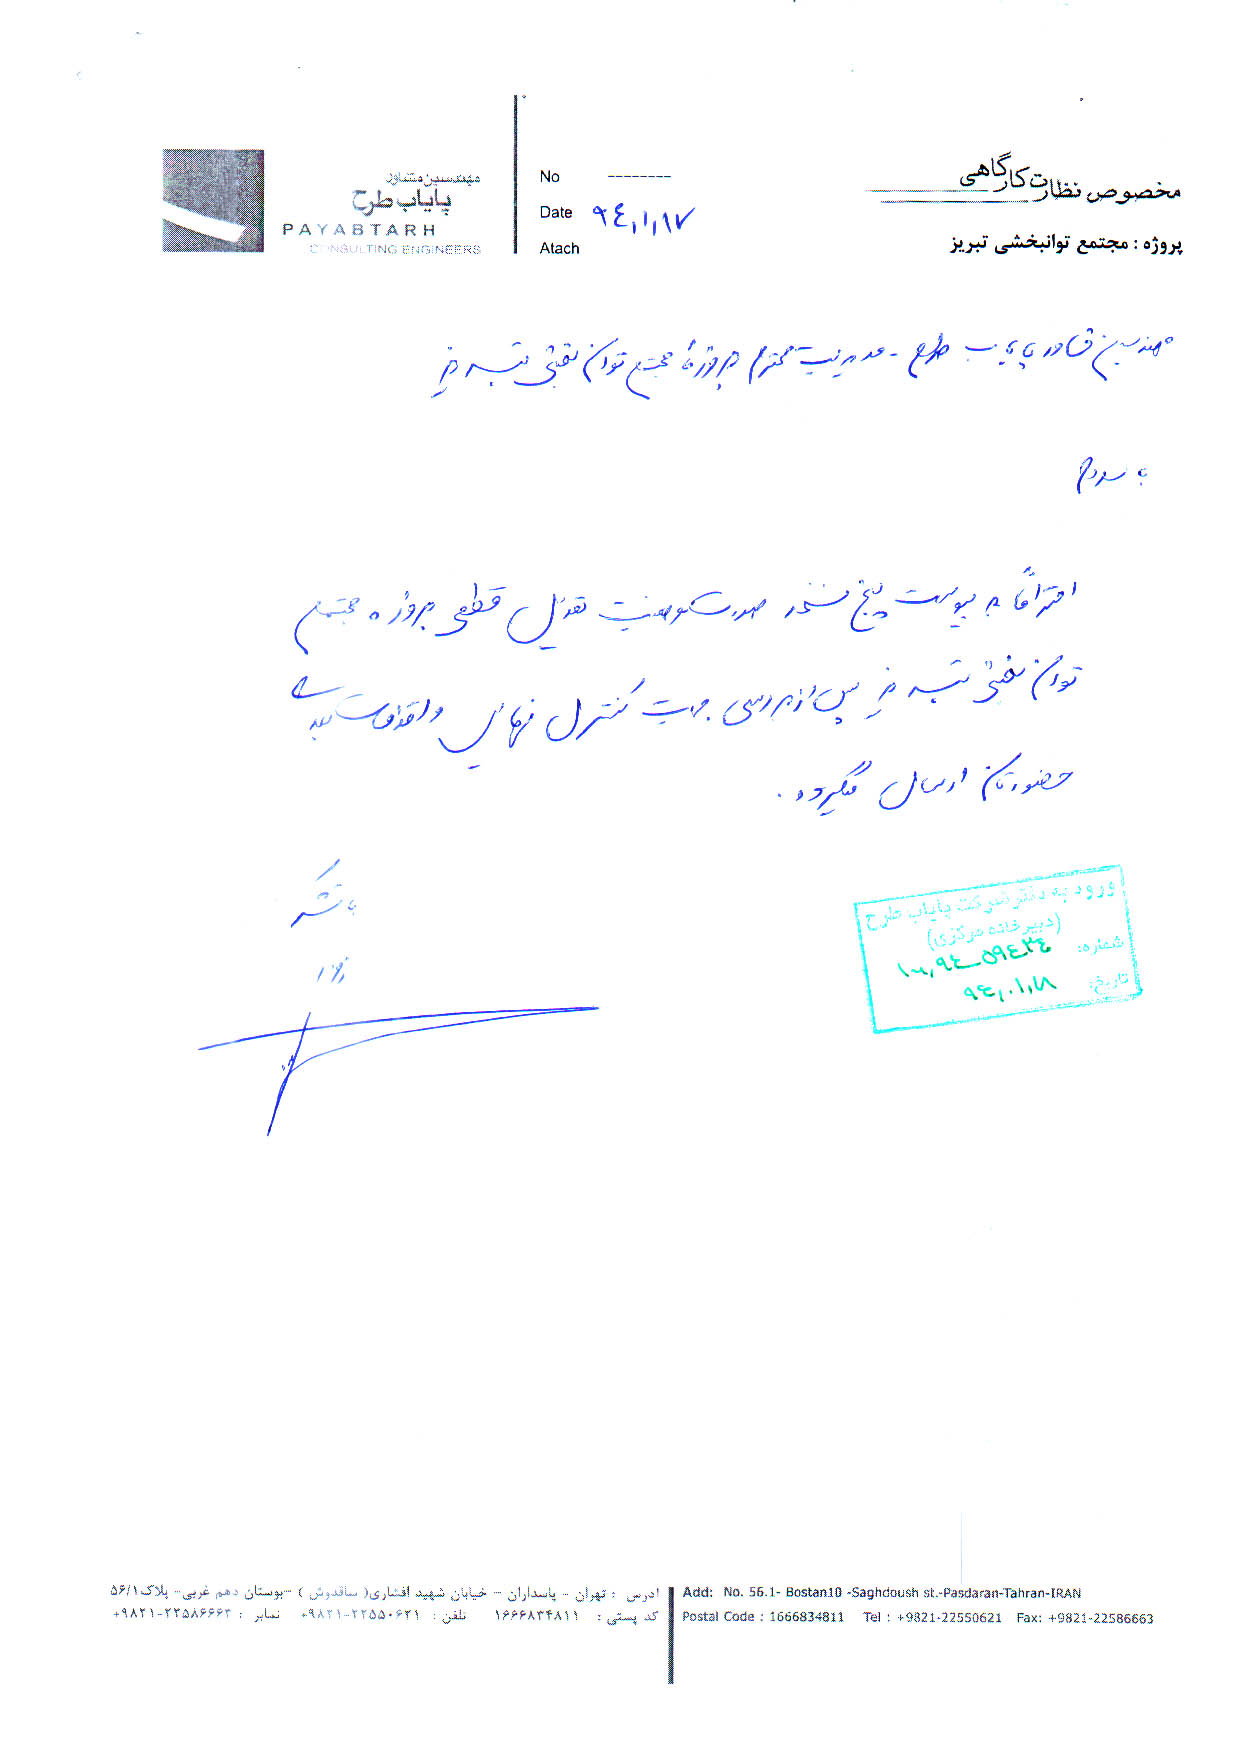 مخصوص نظارت کارگاهی
پروژه : مجتمع توانبخشی تبریز
No --------
Date ۹٤,۱,۱۷
Atach
مهندسین مشاور
پایاب طرح
PAYABTARH
CONSULTING ENGINEERS
مهندسین مشاور پایاب طرح - مدیریت محترم پروژه مجتمع توان بخشی تبریز
با سلام
احتراماً به پیوست پنج نسخه صورت وضعیت تعدیل قطعی پروژه مجتمع
توان بخشی تبریز پس از بررسی جهت کنترل نهایی و اقدامات بعدی
حضورتان ارسال میگردد .
با تشکر
ورود به دفتر شرکت پایاب طرح
(دبیرخانه مرکزی)
شماره:
تاریخ: ۹٤,۰۱,۱۸
آدرس : تهران - پاسداران - خیابان شهید افشاری( ساقدوش ) -بوستان دهم غربی- پلاک۵۶/۱
کد پستی : ۱۶۶۶۸۳۴۸۱۱ تلفن : ۲۲۵۵۰۶۲۱-۹۸۲۱+ نمابر : ۲۲۵۸۶۶۶۳-۹۸۲۱+
Add: No. 56.1- Bostan10 -Saghdoush st.-Pasdaran-Tahran-IRAN
Postal Code : 1666834811 Tel : +9821-22550621 Fax: +9821-22586663